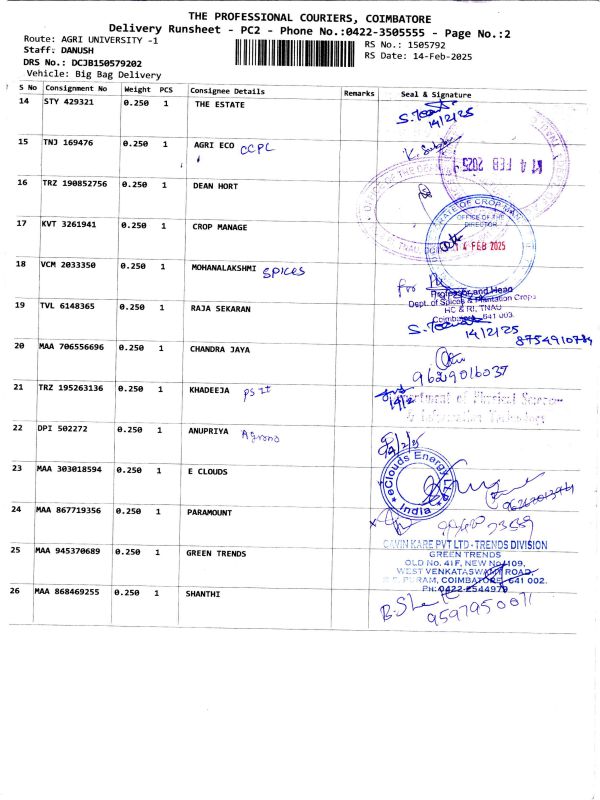 THE PROFESSIONAL COURIERS, COIMBATORE
Delivery Runsheet - PC2 - Phone No.:0422-3505555 - Page No.:2
Route: AGRI UNIVERSITY -1
RS No.: 1505792
Staff: DANUSH
RS Date: 14-Feb-2025
DRS No.: DCJB150579202
Vehicle: Big Bag Delivery
S No Consignment No Weight PCS Consignee Details Remarks Seal & Signature
14 STY 429321 0.250 1 THE ESTATE
14/2/25
15 TNJ 169476 0.250 1 AGRI ECO CCPL
14 FEB 2025
16 TRZ 190852756 0.250 1 DEAN HORT
17 KVT 3261941 0.250 1 CROP MANAGE
OFFICE OF THE
DIRECTOR
4 FEB 2025
18 VCM 2033350 0.250 1 MOHANALAKSHMI SPICES
for
Professor and Head
Dept. of Spices & Plantation Crops
HC & RI, TNAU
Coimbatore - 641 003.
19 TVL 6148365 0.250 1 RAJA SEKARAN
14/2/25
20 MAA 706556696 0.250 1 CHANDRA JAYA
9629016037
21 TRZ 195263136 0.250 1 KHADEEJA PS IT
Department of Physical Science
& Information Technology
22 DPI 502272 0.250 1 ANUPRIYA Agrono
23 MAA 303018594 0.250 1 E CLOUDS
eClouds Energy LLP
India
24 MAA 867719356 0.250 1 PARAMOUNT
25 MAA 945370689 0.250 1 GREEN TRENDS
CAVIN KARE PVT LTD - TRENDS DIVISION
GREEN TRENDS
OLD No. 41F, NEW No. 109,
WEST VENKATASWAMY ROAD,
R.S. PURAM, COIMBATORE - 641 002.
PH: 0422-2544979
26 MAA 868469255 0.250 1 SHANTHI
9597950071